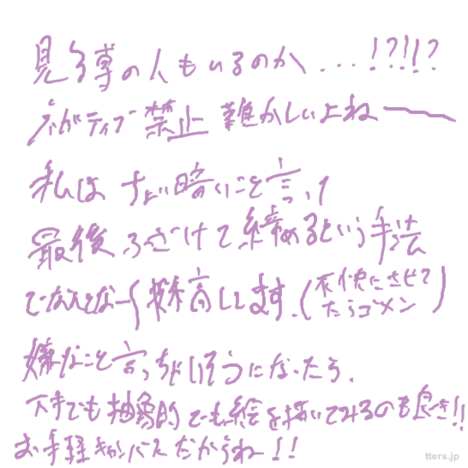 見る専の人もいるのか...!?!!?
ネガティブ禁止 難かしいよねー
私は ちょい暗いこと言って
最後 ふざけて締めるという手法
でなんとなーく 投稿してます。(不快にさせて
たらゴメン)
嫌なこと言っちゃいそうになったら、
下手でも抽象的でも絵を描いてみるのも良き!!
お手軽キャンバスだからねー!!
tters.jp